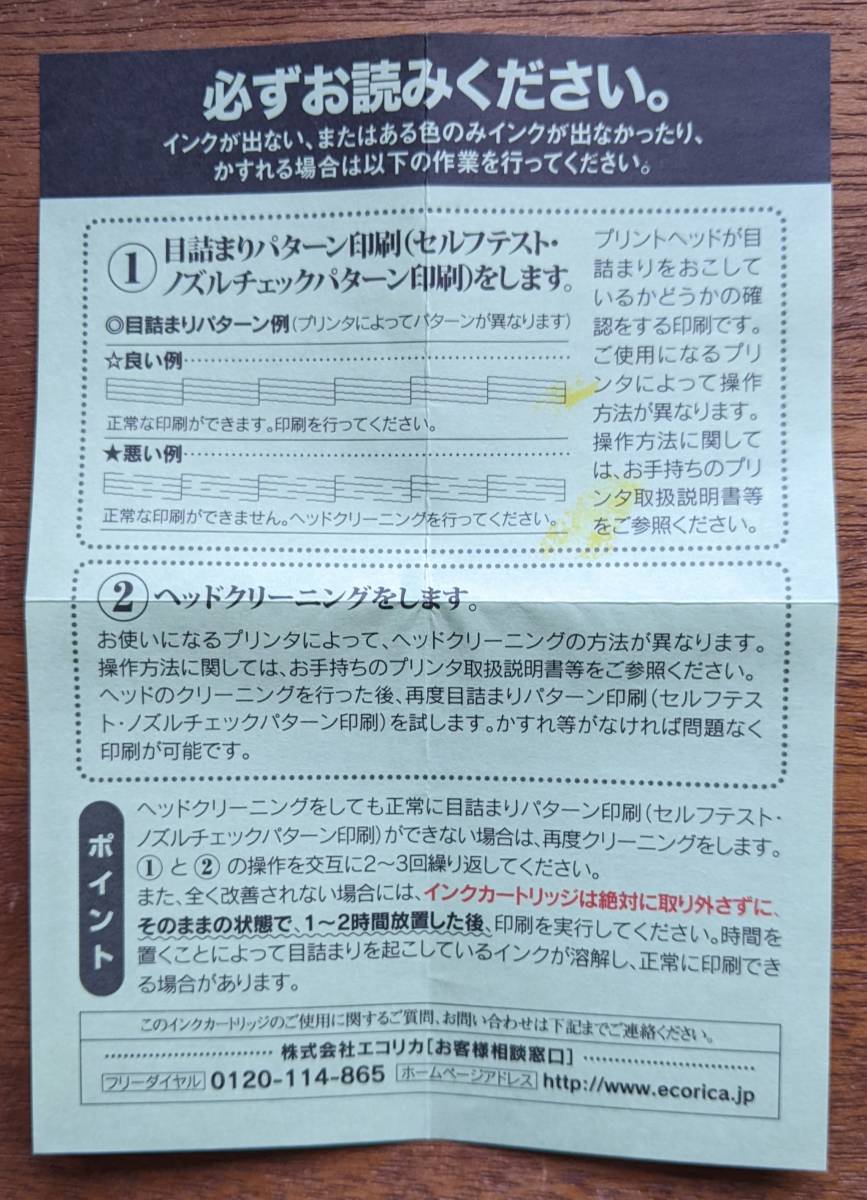 必ずお読みください。
インクが出ない、またはある色のみインクが出なかったり、
かすれる場合は以下の作業を行ってください。
① 目詰まりパターン印刷(セルフテスト・
ノズルチェックパターン印刷)をします。
◎目詰まりパターン例(プリンタによってパターンが異なります)
☆良い例
正常な印刷ができます。印刷を行ってください。
★悪い例
正常な印刷ができません。ヘッドクリーニングを行ってください。
プリントヘッドが目
詰まりをおこして
いるかどうかの確
認をする印刷です。
ご使用になるプリ
ンタによって操作
方法が異なります。
操作方法に関して
は、お手持ちのプリ
ンタ取扱説明書等
をご参照ください。
② ヘッドクリーニングをします。
お使いになるプリンタによって、ヘッドクリーニングの方法が異なります。
操作方法に関しては、お手持ちのプリンタ取扱説明書等をご参照ください。
ヘッドのクリーニングを行った後、再度目詰まりパターン印刷(セルフテス
ト・ノズルチェックパターン印刷)を試します。かすれ等がなければ問題なく
印刷が可能です。
ポイント
ヘッドクリーニングをしても正常に目詰まりパターン印刷(セルフテスト・
ノズルチェックパターン印刷)ができない場合は、再度クリーニングをします。
①と②の操作を交互に2〜3回繰り返してください。
また、全く改善されない場合には、インクカートリッジは絶対に取り外さずに、
そのままの状態で、1〜2時間放置した後、印刷を実行してください。時間を
置くことによって目詰まりを起こしているインクが溶解し、正常に印刷でき
る場合があります。
このインクカートリッジのご使用に関するご質問、お問い合わせは下記までご連絡ください。
株式会社エコリカ[お客様相談窓口]
フリーダイヤル 0120-114-865 ホームページアドレス http://www.ecorica.jp